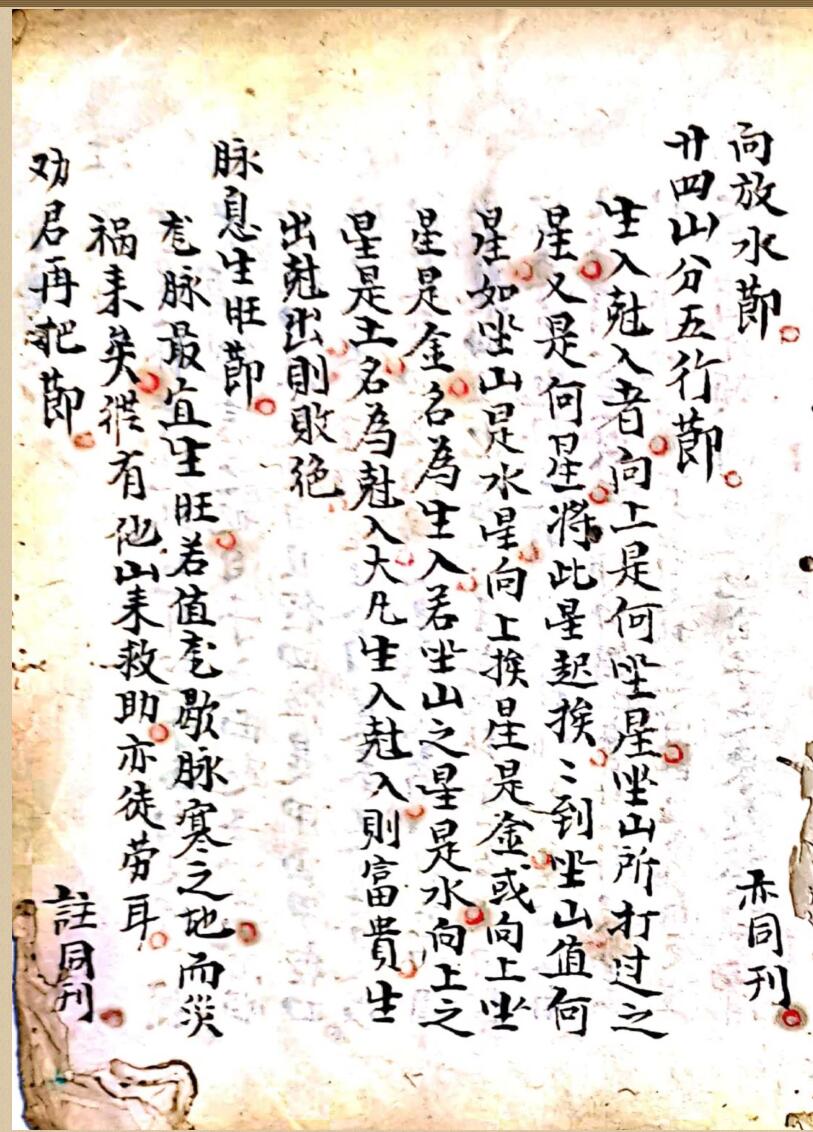 向放水節 亦同刊
廿四山分五行節
生入尅入者向上是何坐星坐山所打过之
星又是何星將此星起挨〻到坐山值何
星如坐山是水星向上挨星是金或向上坐
星是金名為生入若坐山之星是水向上之
星是土名為尅入大凡生入尅入則富貴生
出尅出則敗絶
脉息生旺節
脉最宜生旺若值歇脉寒之地而災
禍来矣縱有他山来救助亦徒劳耳
劝君再把節 註同刊